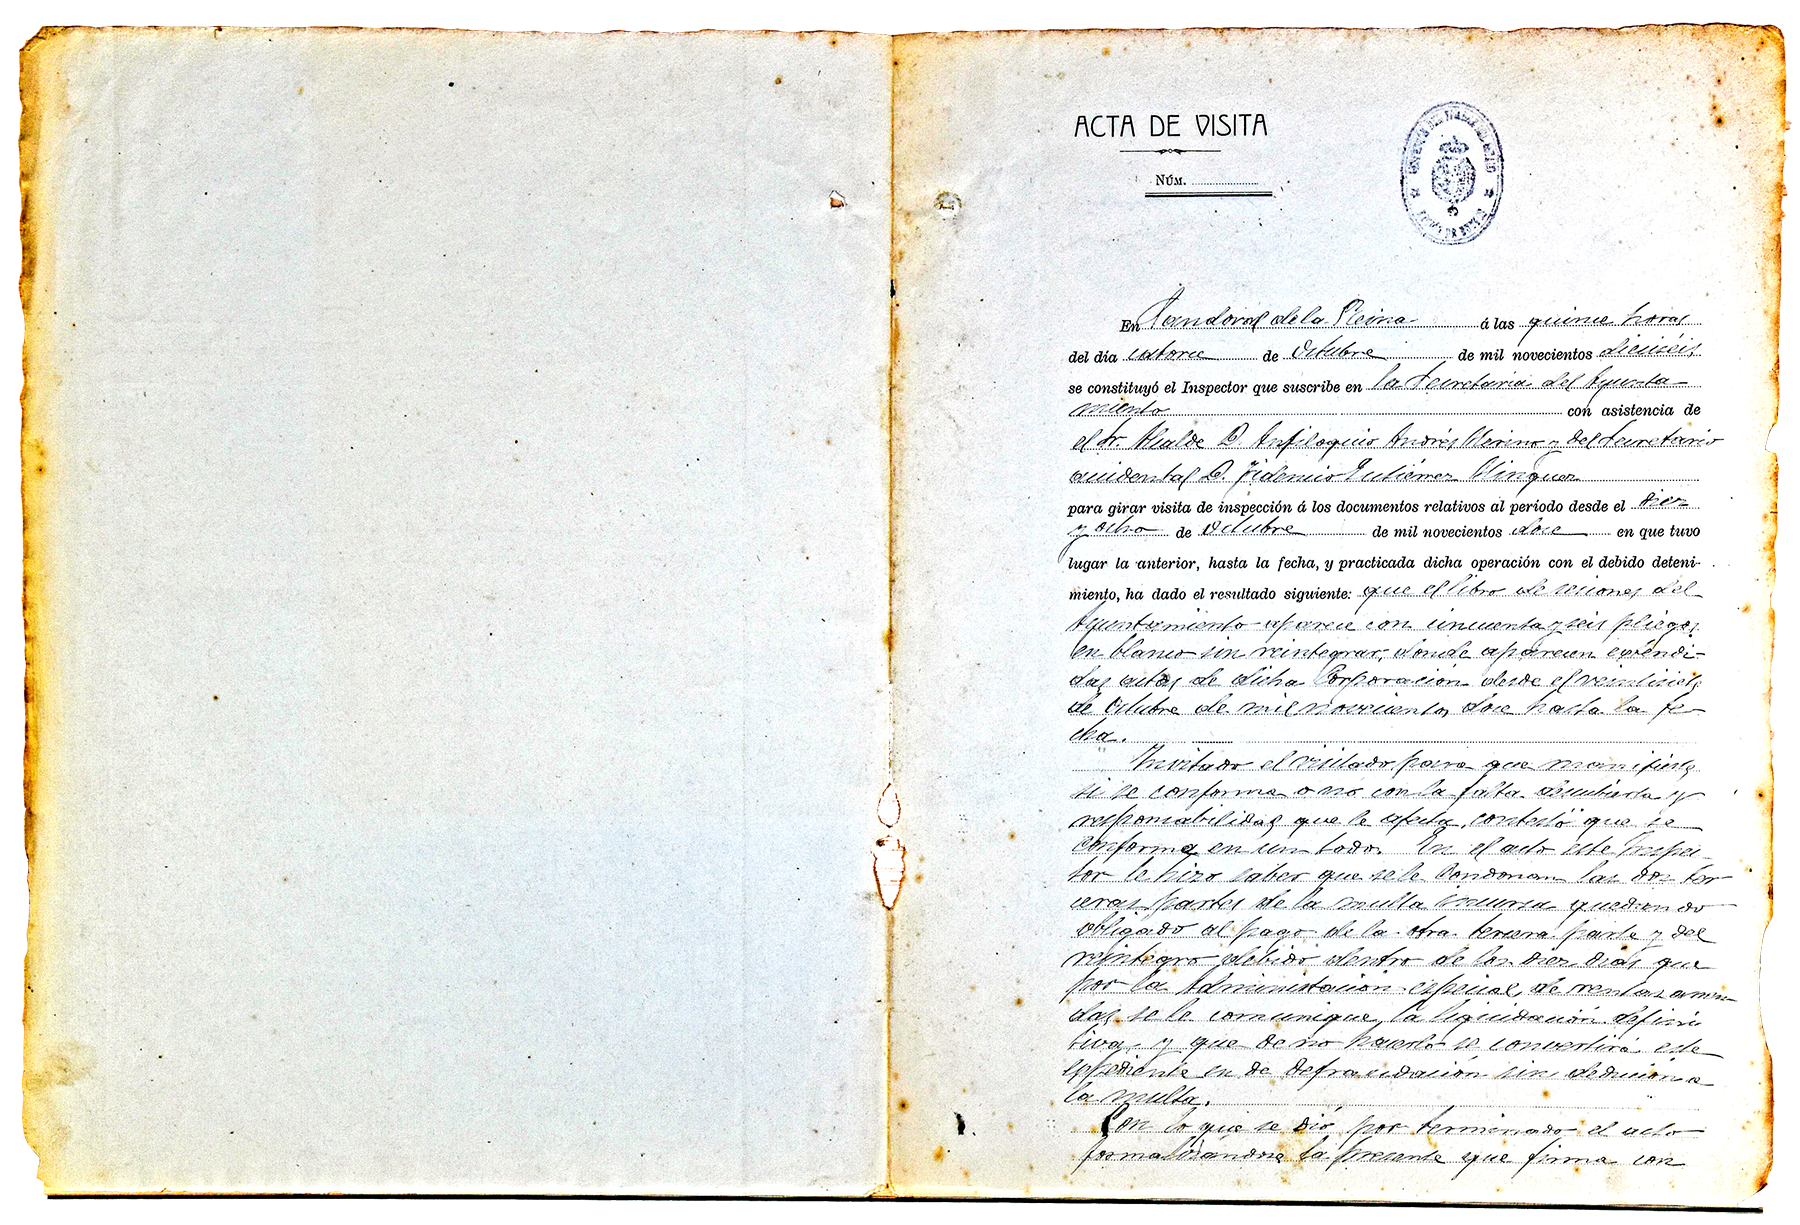 ACTA DE VISITA
NÚM.
En Sandoval de la Reina á las quince horas
del día catorce de Octubre de mil novecientos dieciséis
se constituyó el Inspector que suscribe en la Secretaria del Ayunta-
miento con asistencia de
el Sr. Alcalde D. Anfiloquio Andrés Merino y del Secretario
accidental D. Fidencio Gutiérrez Minguez
para girar visita de inspección á los documentos relativos al período desde el diez
y ocho de Octubre de mil novecientos doce en que tuvo
lugar la anterior, hasta la fecha, y practicada dicha operación con el debido deteni-
miento, ha dado el resultado siguiente: que el libro de sesiones del
Ayuntamiento aparece con cincuenta y seis pliegos
en blanco sin reintegrar, donde aparecen extendi-
das actas de dicha Corporación desde el veintiseis
de Octubre de mil novecientos doce hasta la fe-
cha.
Invitado el visitado para que manifieste
si se conforma o no con la falta descubierta y
responsabilidad que le afecta, contestó que se
conforma en un todo. En el acto este Inspec-
tor le hizo saber que se le condonan las dos ter
ceras partes de la multa incursa quedando
obligado al pago de la otra tercera parte y del
reintegro debido dentro de los diez dias que
por la Administración especial de rentas arren-
das se le comunique la liquidación defini
tiva, y que de no hacerlo se convertirá este
expediente en de defraudación sin deducion a
la multa.
Con lo que se dió por terminado el acto
formalizándose la presente que firma con